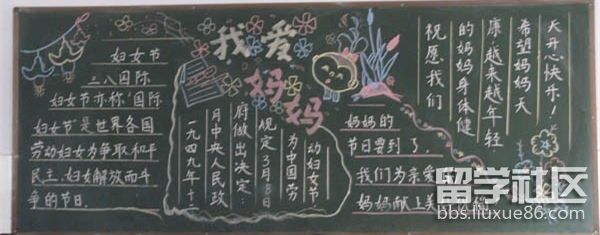 妇女节
三八国际
妇女节亦称"国际
妇女节"是世界各国
劳动妇女为争取和平
民主、妇女解放而斗
争的节日。
我爱
妈妈
一九四九年十
月中央人民政
府做出决定:
规定3月8日
为中国劳
动妇女节
祝愿我们
的妈妈身体健
康越来越年轻
希望妈妈天
天开心快乐!
妈妈的
节日要到了,
我们为亲爱
妈妈献上美
留学社区
bbs.liuxue86.com